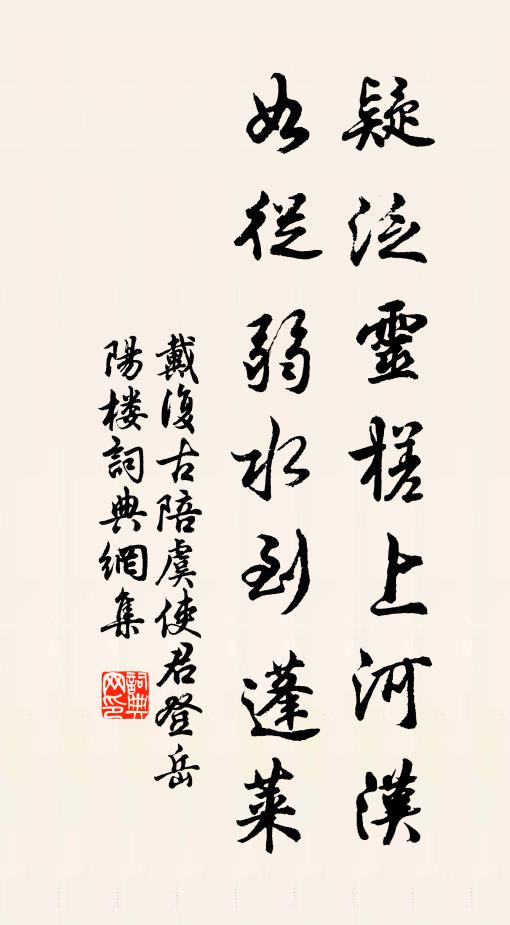 疑泛靈槎上河漢
如從弱水到蓬萊
戴復古陪虞使君登岳
陽楼詞典網集
詞典网印